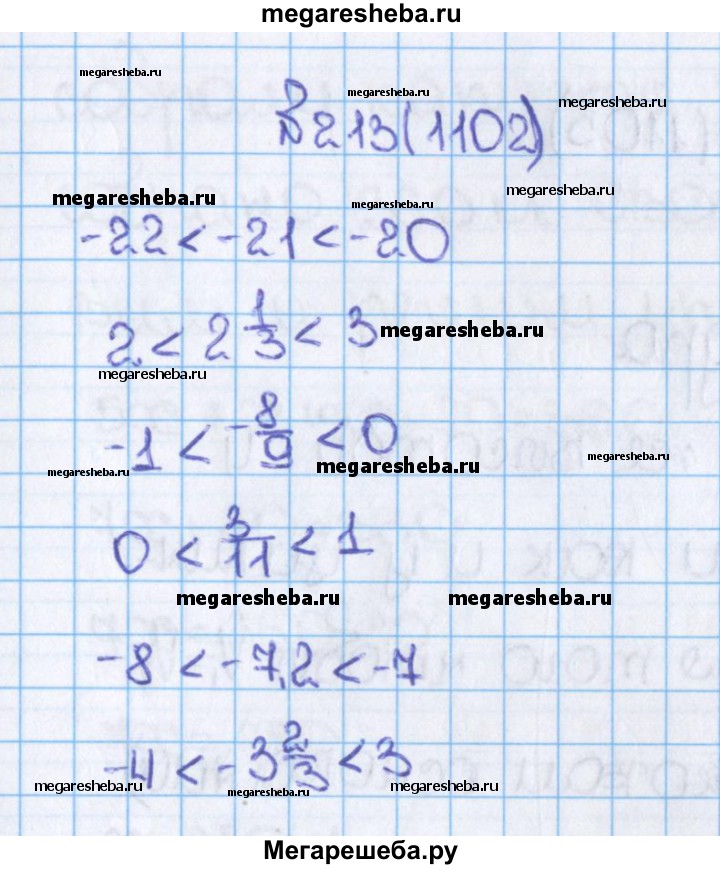 megaresheba.ru
megaresheba.ru
megaresheba.ru
megaresheba.ru
№213(1102)
megaresheba.ru
megaresheba.ru
megaresheba.ru
-22 < -21 < -20
2 < 2 1/3 < 3
megaresheba.ru
megaresheba.ru
-1 < -8/9 < 0
megaresheba.ru
megaresheba.ru
megaresheba.ru
0 < 3/11 < 1
megaresheba.ru
megaresheba.ru
-8 < -7,2 < -7
-4 < -3 2/3 < 3
megaresheba.ru
megaresheba.ru
megaresheba.ru
Мегарешеба.ру